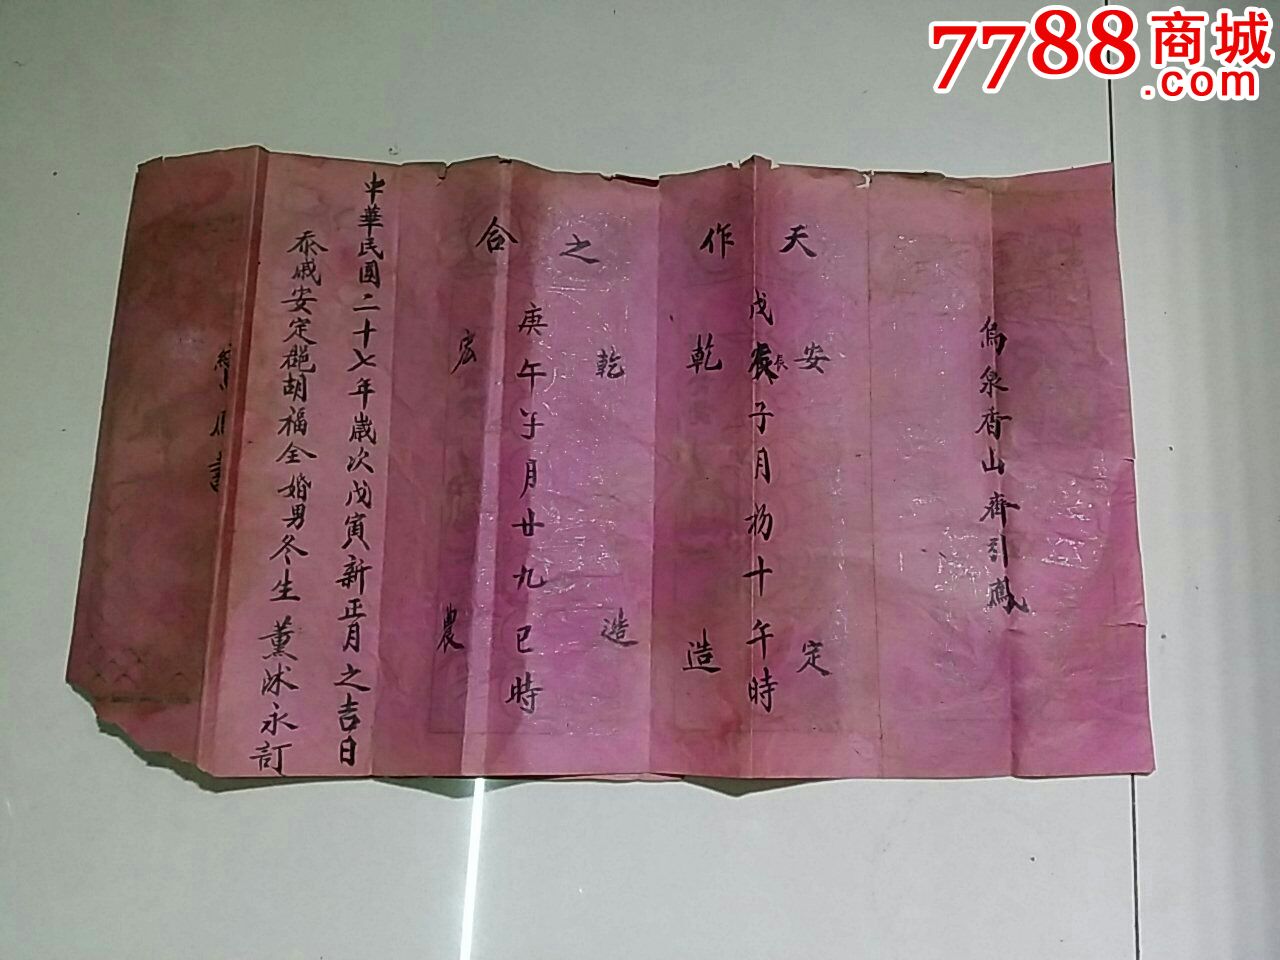 7788商城
.com
天作之合
鳥泉香山齊引鳳
安定
戊辰長子月初十午時
乾造
乾造
庚午年月廿九巳時
宏農
中華民國二十七年歲次戊寅新正月之吉日
忝戚安定郡胡福全婚男冬生薰沐永訂